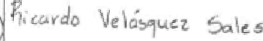 Ricardo Velásquez Sales